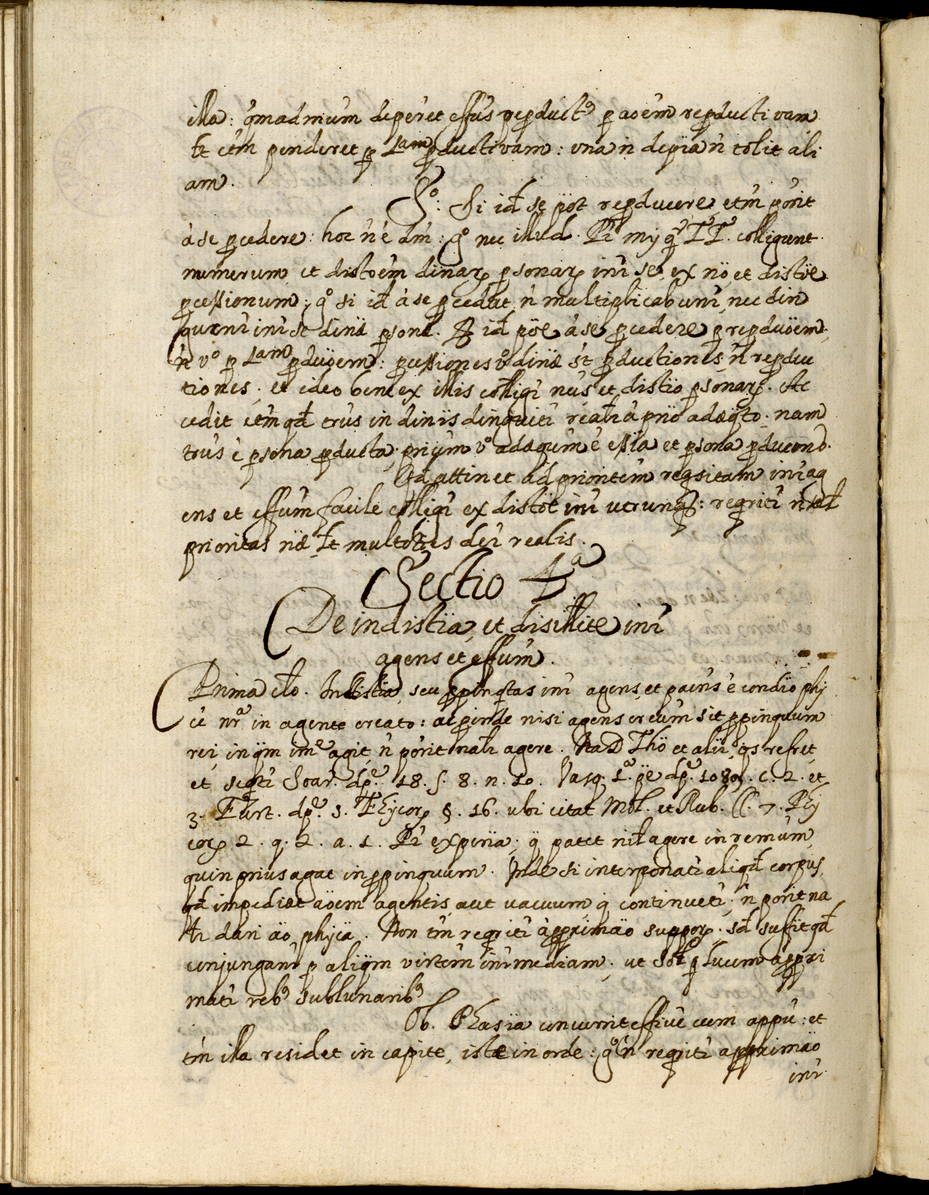 illa: qmadmum deperet effus reproduct9 p aoem reproductivam
et etm penderet p 1am productivam: una n depīa n tolit ali
am.
So. Si id se pöt reproducere, etm porit
à se procedere: hoc n é dm: go nec illud. Pr mr qr TT. colligunt
numerum et distoem dinar personar inr se ex no et distïe
processionum; qo si id à se procedat, n multiplicabunr, nec din
guenr inr se dinæ persone. R id pöe à se procedere p reproduöem,
n vo p 1am produöem: processiones v dinæ st productiones, n reproduc
tiones, et ideo bene ex illis colligi nus et distio personar. Ac
cedit etm qd trus in dinis dinguitr realr à pno adæqto. nam
trus è persona producta, prium vo adæqum é essīa et persona producens.
Quod attinet ad prioritem reqsitam inr ag
ens et effum facile colligr ex distöe inr utrunq: reqritr n
prioritas næ, et multoties der realis.
Sectio 4a
De indistīa, et disilite inr
agens et effum.
Prima clo. Indistīa, seu propinqtas inr agens, et patns é condio phy
ce nra in agente creato: ac proinde nisi agens creum sit propinquum
rei, in qm ime agit, n porit nalr agere. Ita D Tho et alii, qs refert,
et seqtr Soar. dpe. 18. s. 8. n. 10. Vasq. 1a pe dpe. 108. c. 2. et
3. Furt. dpe. 1. Phycor §. 16. ubi citat Mol. et Rub. ll. 7. Phy
cor 2. q. 2. a. 1. Pr experīa; q patet nil agere in remum,
quin prius agat in propinquum. Unde si interponatr aliqd corpus,
qd impediat aöem agentis, aut vacuum q continuetr, n porit na
lr dari ao phyca. Non tm reqritr approximäo suppor. sd suffit qd
conjungantr p aliqm virtem inrmediam. ut Sol q lucem approxi
matr reb9 sublunarib9.
Ob. Phasīa concurrit effive cum appu: et
tm illa residet in capite, iste in corde: go n reqritr approximäo
inr